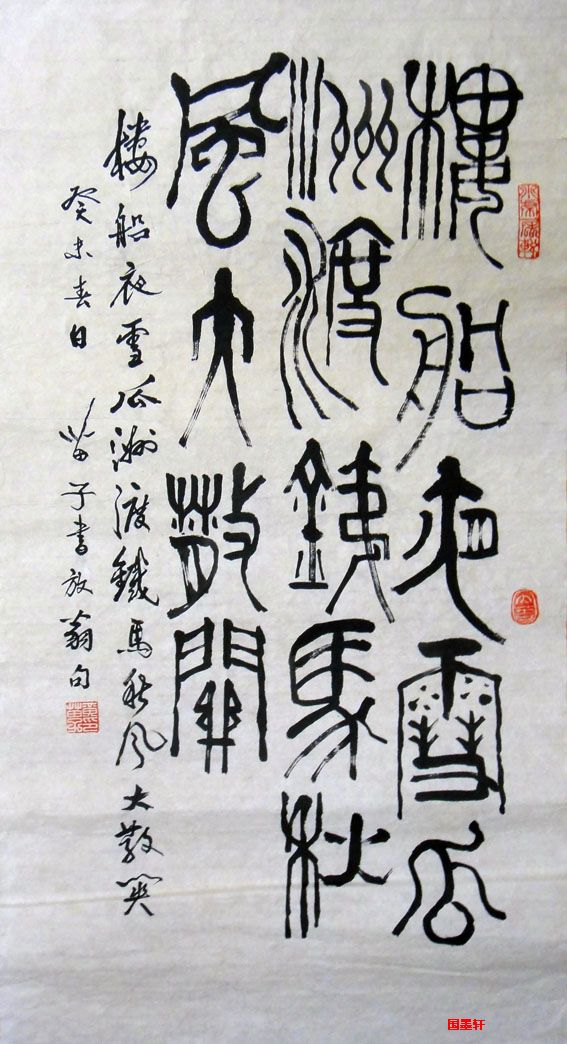 樓船夜雪瓜
洲渡鐵馬秋
風大散關
楼船夜雪瓜洲渡鐵馬秋风大散関
癸未春日 苗子書放翁句
国墨轩